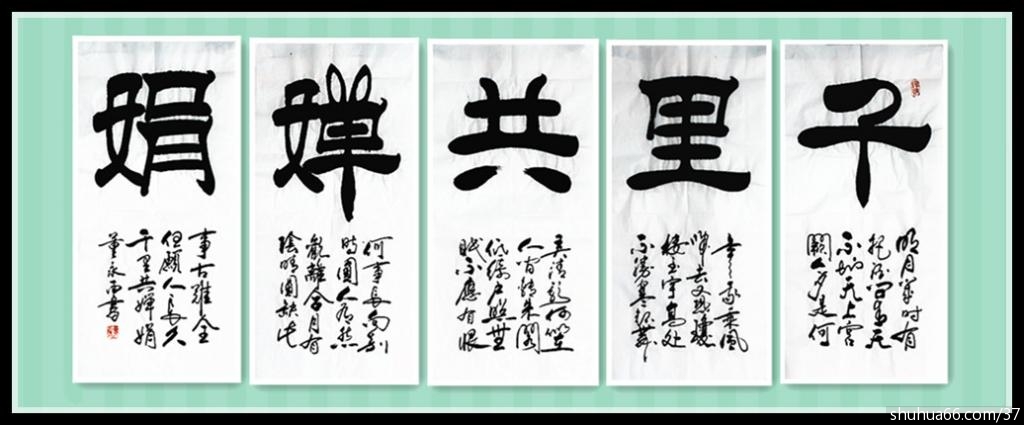 千
明月幾时有
把酒问青天
不知天上宫
闕今夕是何
里
年我欲乘風
归去又恐瓊
楼玉宇高处
不勝寒起舞
共
弄清影何似在
人间转朱阁
低绮户照無
眠不應有恨
婵
何事長向别
时圓人有悲
歡離合月有
陰晴圓缺此
娟
事古難全
但願人長久
千里共婵娟
shuhua66.com/37